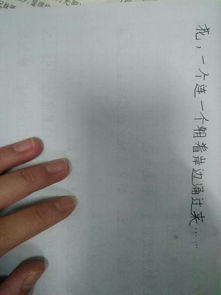 花，一个连一个朝着岸边涌过来……